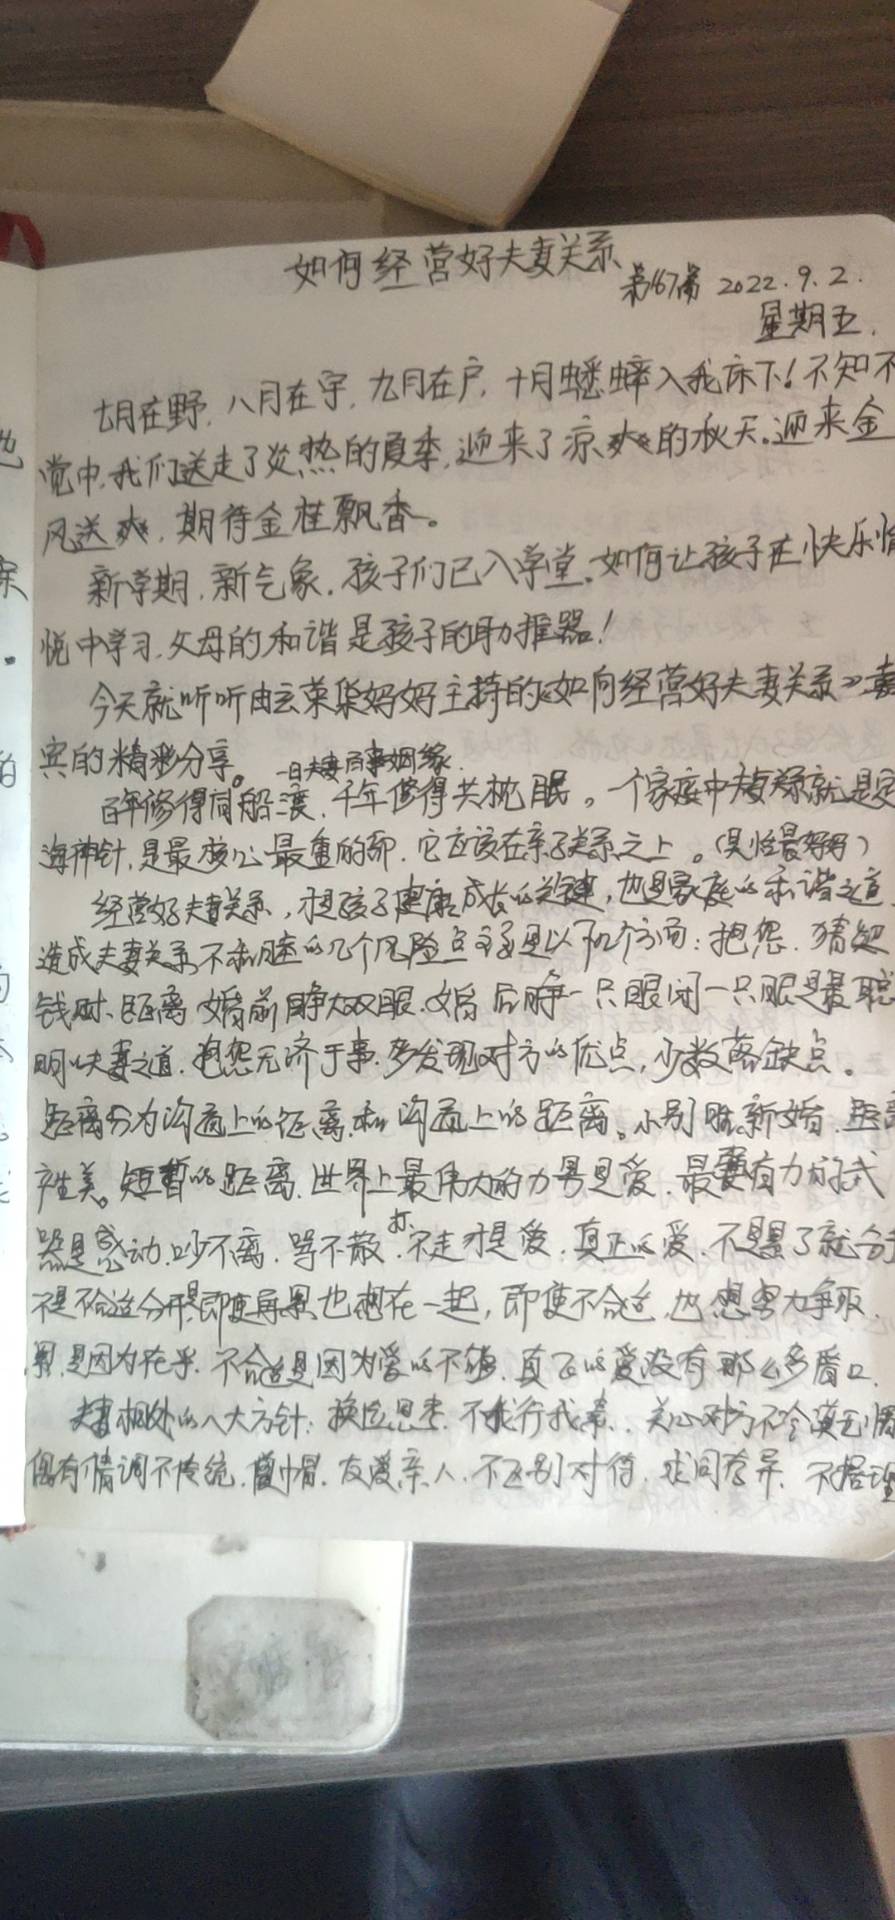 如何经营好夫妻关系
第167篇 2022.9.2.
星期五.
七月在野,八月在宇,九月在户,十月蟋蟀入我床下!不知不
觉中,我们送走了炎热的夏季,迎来了凉爽的秋天。迎来金
风送爽,期待金桂飘香。
新学期,新气象,孩子们已入学堂。如何让孩子在快乐愉
悦中学习,父母的和谐是孩子的助推器!
今天就听听由云菜柴妈妈主持的《如何经营好夫妻关系》嘉
宾的精彩分享。
一日夫妻百事姻缘
百年修得同船渡,千年修得共枕眠。一个家庭中夫妻关系就是定
海神针,是最核心最重的部,它应该在亲子关系之上。(吴怡晨好好)
经营好夫妻关系,是孩子健康成长的关键,也是家庭的和谐之道,
造成夫妻关系不和睦的几个风险点主要是以下几个方面:抱怨、猜疑
钱财、距离 婚前睁大双眼,婚后睁一只眼闭一只眼是最聪
明的夫妻之道,抱怨无济于事,多发现对方的优点,少数落缺点。
距离分为沟通上的距离和沟通上的距离。小别胜新婚,距离
产生美。短暂的距离,世界上最伟大的力量是爱,最有力的武
器是感动,吵不离,骂不散,打不走才是爱,真正的爱,不是累了就分手
不是不合适分开,即使再累也想在一起,即使不合适,也想努力争取,
累,是因为在乎,不合适是因为爱的不够,真正的爱没有那么多借口
夫妻相处的八大方针:换位思考,不我行我素,关心对方不冷漠
偶有情调不传统,友爱亲人,不区别对待,求同存异,不据理